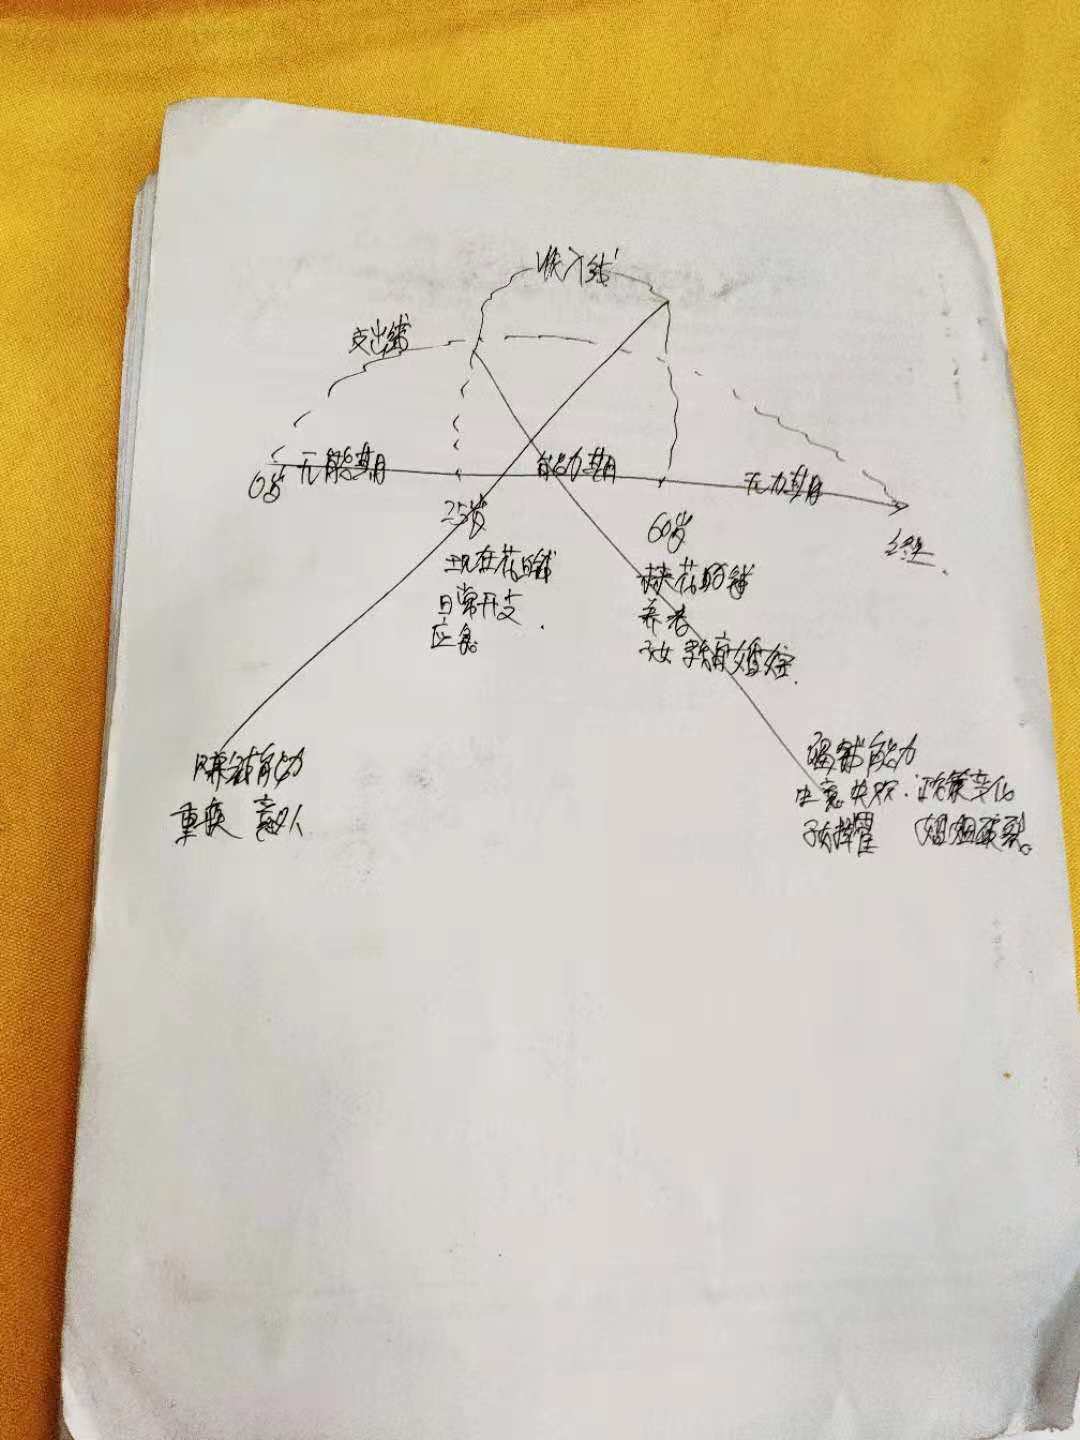 收入线
支出线
无能期 能力期 无力期
0岁 25岁 60岁 终
现在花的钱
日常开支
应急
将来花的钱
养老
子女教育婚嫁
赚钱能力
重疾 意外
留钱能力
生意失败 政策变化
子女挥霍 婚姻破裂。